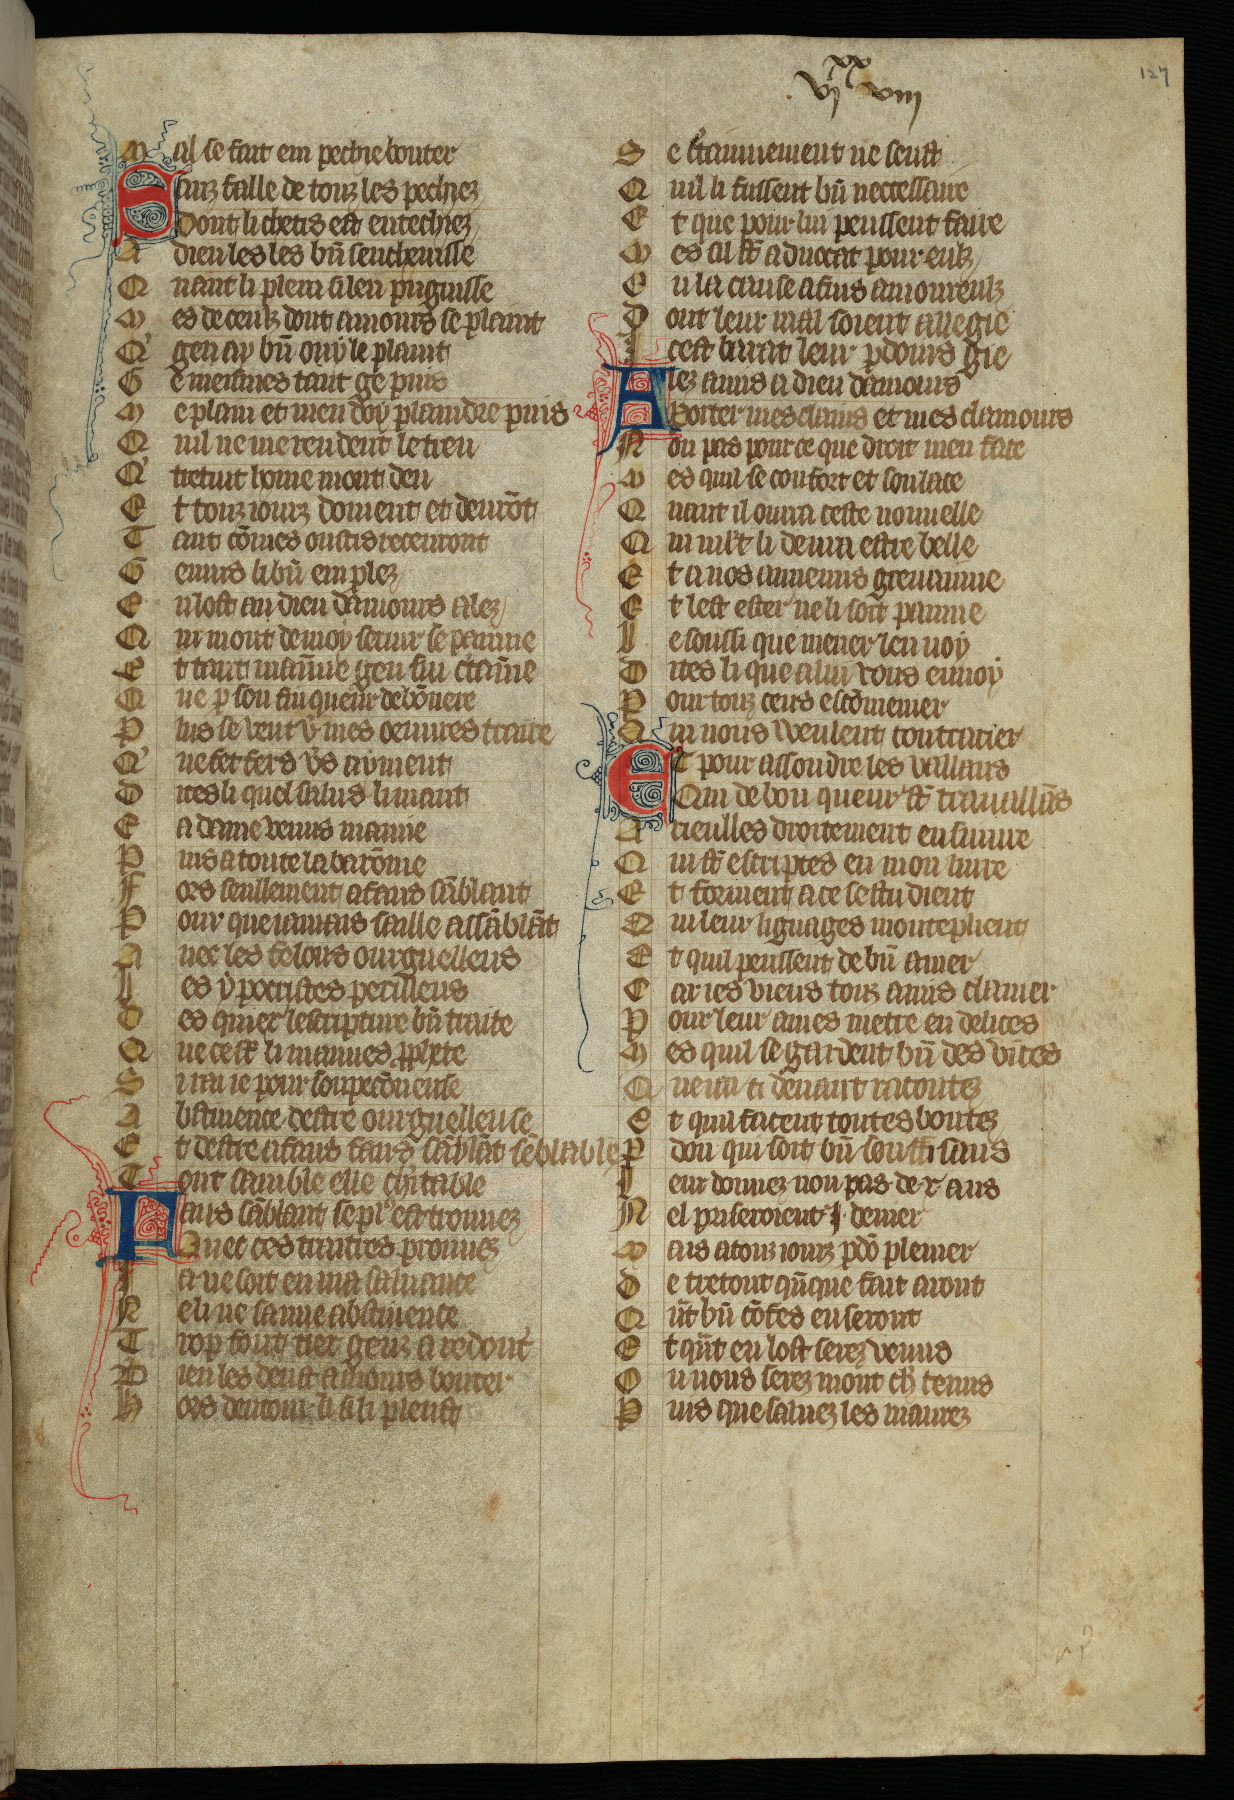 .vi xx viii
127
Mal se fait em pechie bouter
Sanz faille de touz les pechiez
Dont li chetis est entechiez
A dieu les les bn̄ sen cheuisse
Quant li plera si len pugnisse
Mes de ceulz dont amours se plaint
Q' gen ay bn̄ ouy le plaint
Ge meismes tant ge puis
Me plain et men doy plaindre puis
Quil ne me rendent le treu
Q' tretuit home mont deu
Et touz iours doiuent et deurōt
Tant cōmes oustis receuront
Genius li bn̄ emplez
En lost au dieu damours alez
Qui mont de moy seruir se painne
Et tant maīme gen sui ctāine
Que p son fin queur debōnere
Plus se veut v̄s mes oeuures traire
Q' ne fet fers v̄s ayment
Dites li quel salus li mant
Et a dame venus mamie
Puis a toute la barōnie
Fors seulement a faus sāblant
Pour que iamais saille assāblāt
Auec les felons ourguelleus
Les ypocristes perilleus
Des quiex lescripture bn̄ traite
Que ce st̄ li mauues pphete
Si rai ie pour soupecōneuse
Abstinence destre ourguelleuse
Et destre a faus faus sāblāt sēblable
Tout samble elle ch'itable
Faus sāblant se pl' est trouuez
Auec ces traitres prouuez
Ja ne soit en ma saluance
Ne li ne samie abstinence
Trop sont tiex genz a redout'
Bien les deust amours bouter
Hors de mour li si li pleust
Se c'tainnement ne seust
Quil li fussent bn̄ necessaire
Et que pour lui peussent faire
Mes cil st̄ aduocat pour eulz
En la cause a fins amoureulz
Dont leur mal soient allegie
Icest barat leur pdoins gie
Alez amis a dieu damours
Porter mes clains et mes clamours
Non pas pour ce que droit men face
Mes quil se confort et soulace
Quant il ourra ceste nouuelle
Qui mlt li deura estre belle
Et a nos annemis greuainne
Et lest ester ne li soit painne
Le soussi que mener len uoy
Dites li que a lui vous enuoy
Pour touz ceus escōmenier
Qui nous weulent contrarier
Et pour assoudre les vallans
Qui de bon queur st̄ trauallās
A rieulles droitement ensuiure
Qui st̄ escriptes en mon liure
Et forment a ce sestudient
Qui leur lignages monteplient
Et quil peussent de bn̄ amer
Car ies viens touz amis clamer
Pour leur ames metre en delices
Mes quil se gardent bn̄ des vices
Que iai ci deuant racontez
Et quil facent toutes bontez
Pdon qui soit bn̄ souffisans
Leur donnez non pas de x ans
Nel priseroient .i. denier
Mais a touz iours pdō plenier
De tretout qn̄que fait auront
Qn̄t bn̄ cōfes en seront
Et qn̄t en lost serez venus
Ou nous serez mont ch' tenus
Puis que saluez les maurez